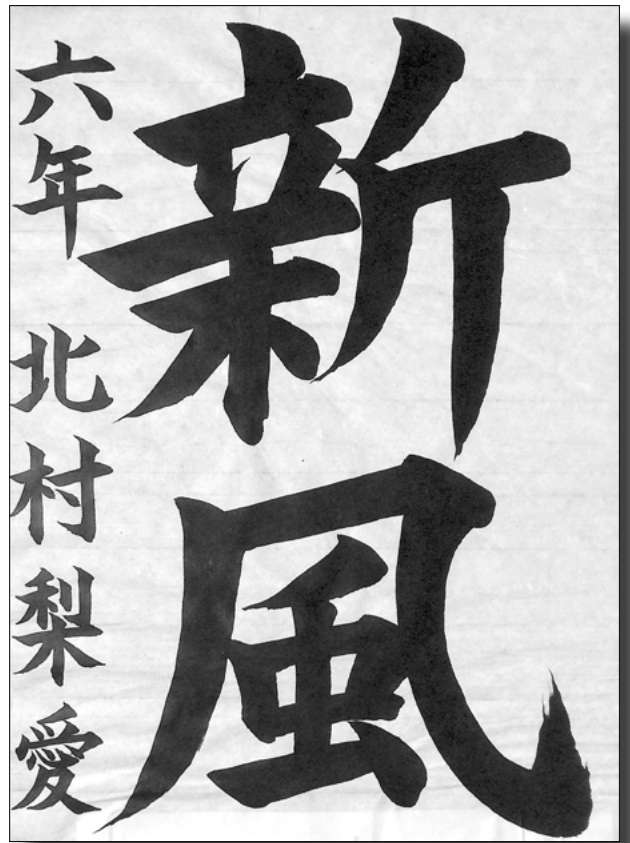 新風
六年 北村梨愛